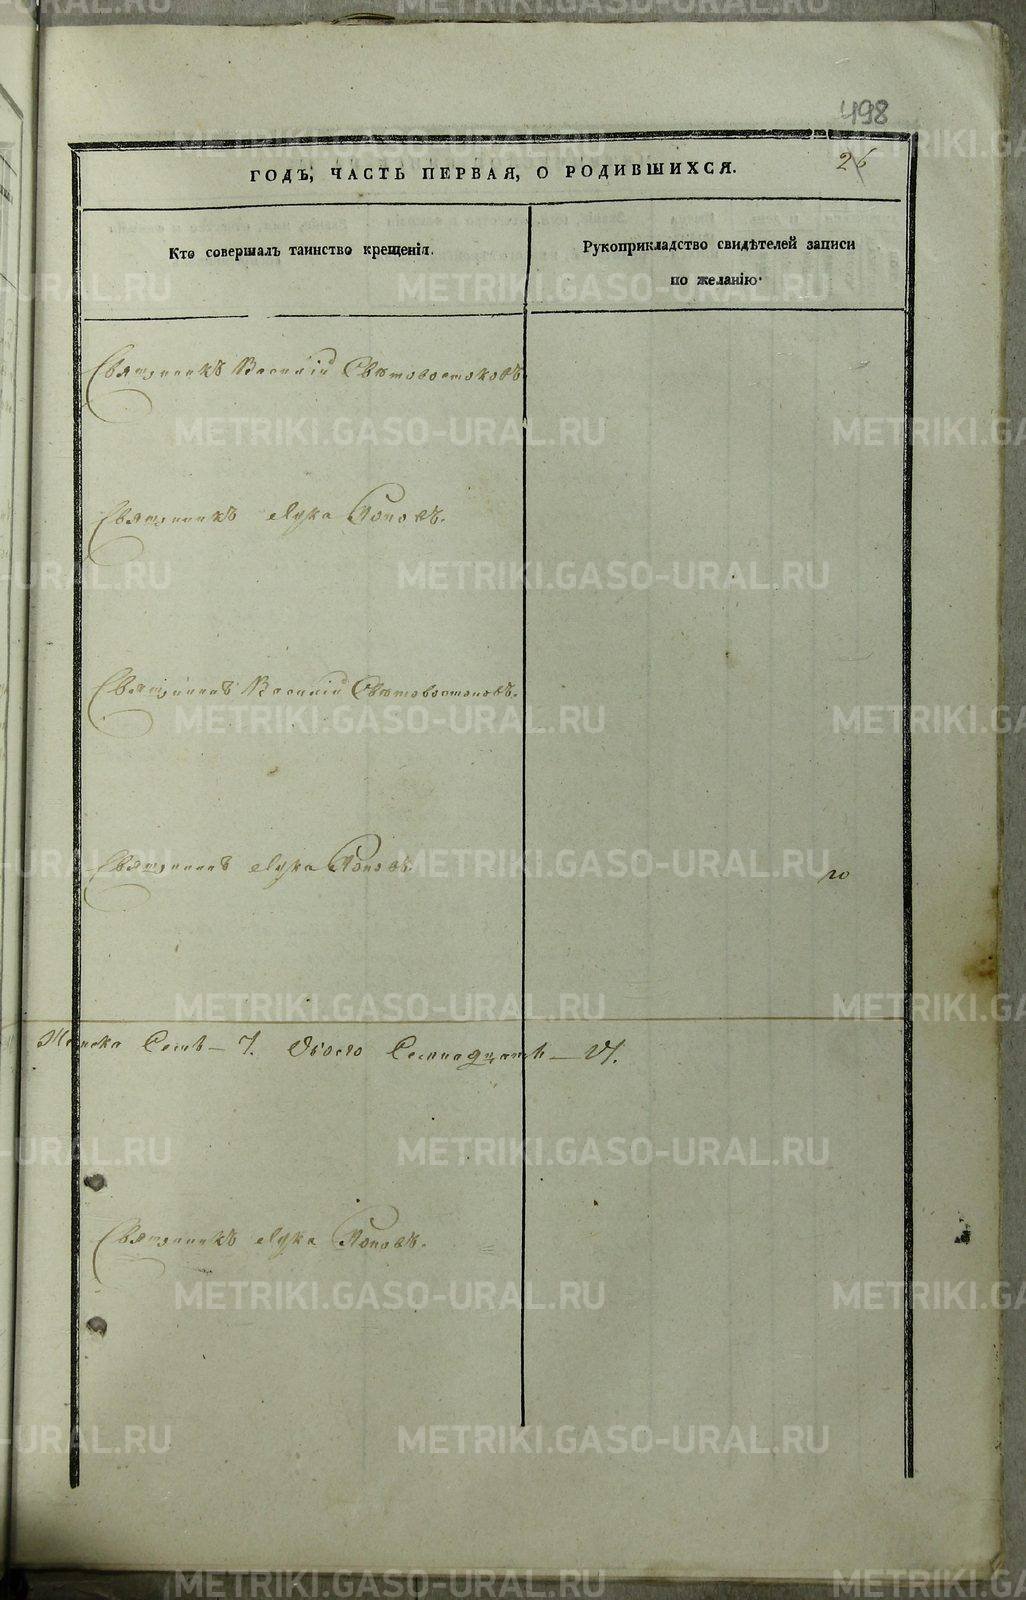 498
26
ГОДЪ, ЧАСТЬ ПЕРВАЯ, О РОДИВШИХСЯ.
Кто совершалъ таинство крещенія.
Рукоприкладство свидѣтелей записи
по желанію.
Священникъ Василій Свѣтовостоковъ.
Священникъ Лука Поповъ.
Священникъ Василій Свѣтовостоковъ.
Священникъ Лука Поповъ.
го
Женска Семь — 7. Обоего Семнадцать —
Священникъ Лука Поповъ.
METRIKI.GASO-URAL.RU